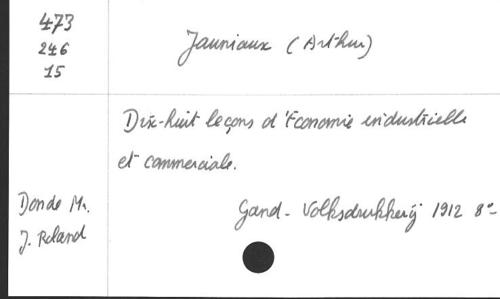 473
246
15
Jauniaux (Arthur)
Dix-huit leçons d'Economie industrielle
et commerciale.
Don de Mr.
J. Roland
Gand - Volksdrukkerij 1912 8°-